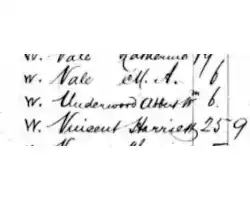 W. Vale Katherine 19
W. Vale M. A. 6
W. Underwood Albert Wm 6.
W. Vincent Harriett 25 9
W.